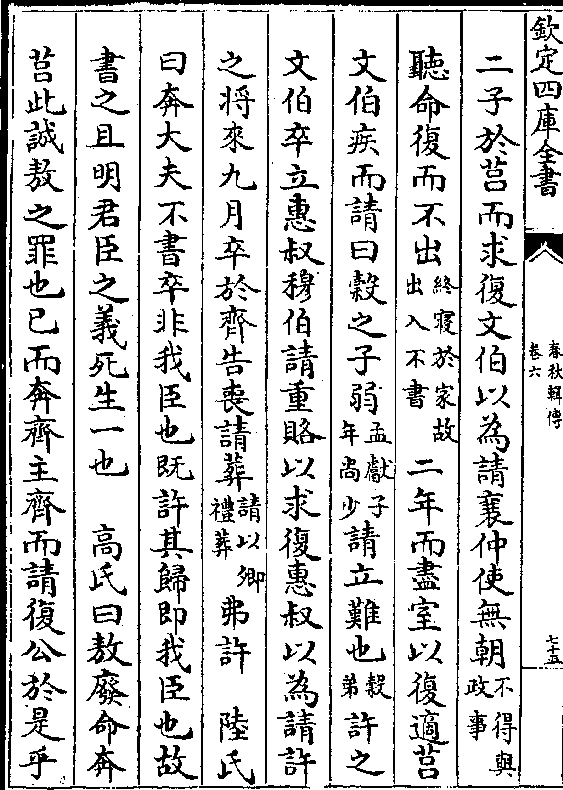 欽定四庫全書
春秋輯傳
卷六
七十五
二子於莒而求復文伯以為請襄仲使無朝不得與政事
聽命復而不出終寢於家故出入不書二年而盡室以復適莒
文伯疾而請曰穀之子弱孟獻子年尚少請立難也穀弟許之
文伯卒立惠叔穆伯請重賂以求復惠叔以為請許
之將來九月卒於齊告喪請葬請以卿禮葬弗許　陸氏
曰奔大夫不書卒非我臣也既許其歸即我臣也故
書之且明君臣之義死生一也　高氏曰敖廢命奔
莒此誠敖之罪也已而奔齊主齊而請復公於是乎